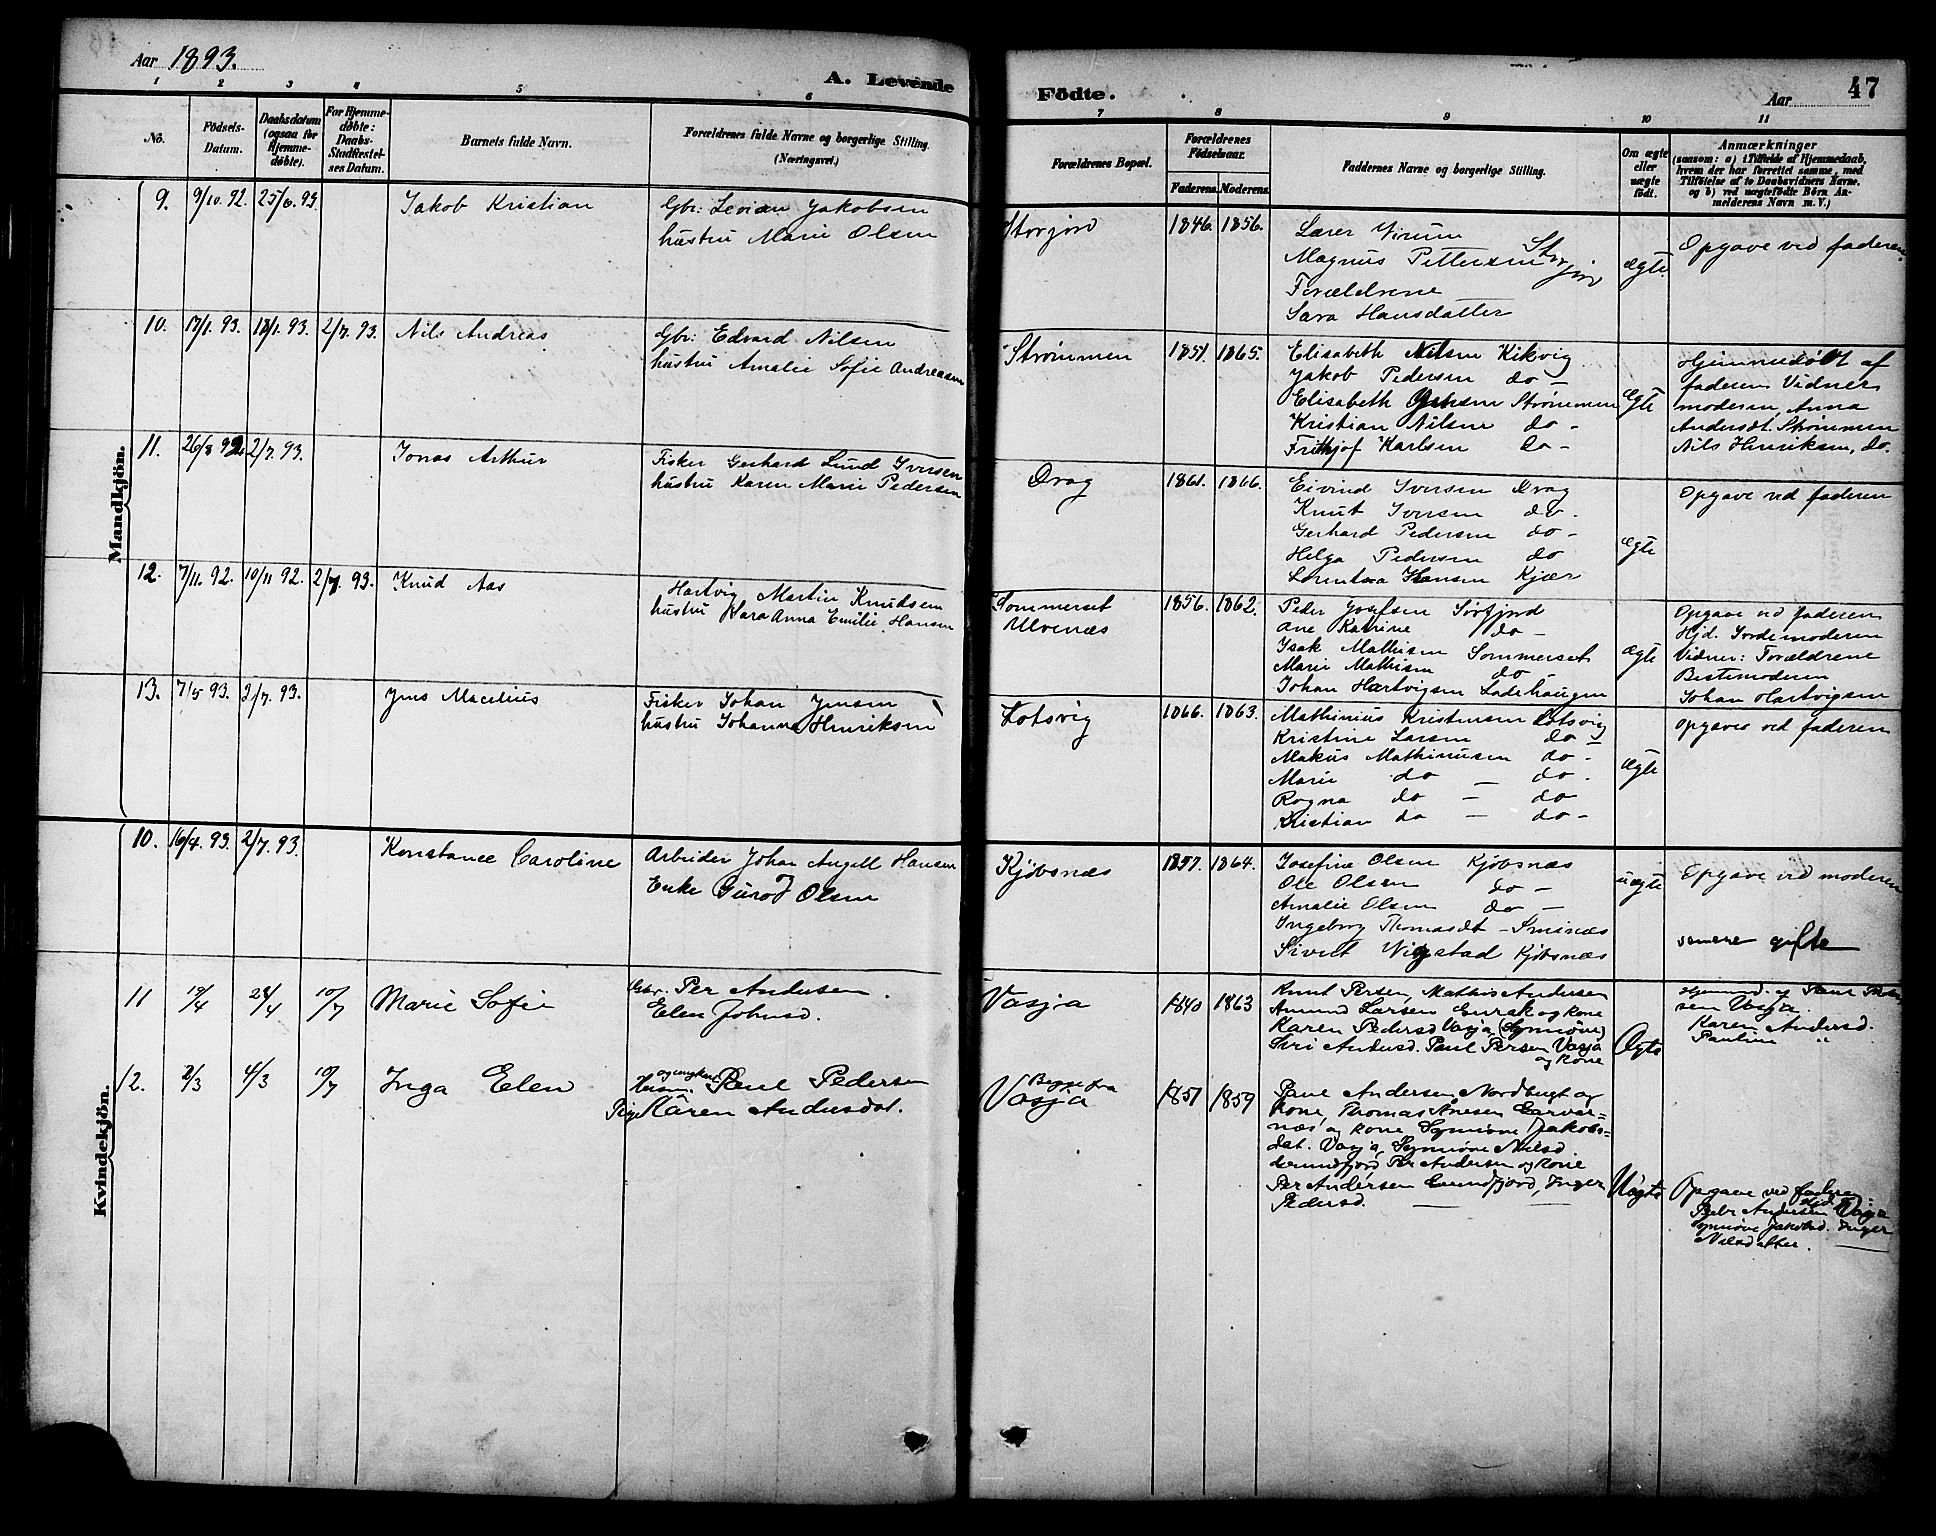 Aar 1893.
A. Levende
Födte.
Aar
47
1 2 3 4 5 6
7 8 9 10 11
No.
Födsels-
Datum.
Daabsdatum
(ogsaa for
Hjemme-
døbte).
For Hjemme-
døbte:
Daabs-
Stadfestel-
ses Datum.
Barnets fulde Navn.
Forældrenes fulde Navne og borgerlige Stilling.
(Næringsvei.)
Forældrenes Bopæl.
Forældrenes
Födselsaar.
Faderens. Moderens.
Faddernes Navne og borgerlige Stilling.
Om ægte
eller
uægte
født.
Anmærkninger
(saasom: a) i Tilfælde af Hjemmedaab,
hvem der har forrettet samme, med
Tilføielse af to Daabsvidners Navne,
og b) ved uægtefödte Börn An-
melderens Navn m. V.)
Mandkjön.
9. 9/10. 92. 25/6. 93. Jakob Kristian
Gbr: Levian Jakobsen
hustru Marie Olsen
Storjord 1846. 1856.
Lærer Virum
Magnus Pettersen Storjord
Forældrene
Sara Hansdatter
ægte.
Opgave ved faderen.
10. 17/1. 93. 18/1. 93. 2/7. 93. Nils Andreas
Gbr: Edvard Nilsen
hustru Amalie Sofie Andreasen
Strømmen 1851. 1865.
Elisabeth Nilsen Kikvig
Jakob Pedersen do -
Elisabeth Strømmen
Kristian Nilsen do -
Frithjof Karlsen do -
Ægte
Hjemmedøbt af
faderen Vidner
moderen, Anna
Andersdt. Strømmen
Nils Henriksen, do.
11. 26/8 92. 2/7. 93. Jonas Arthur
Fisker Gerhard Lund Iversen
hustru Karen Marie Pedersen
Drag 1861. 1866.
Eivind Iversen Drag
Knut Iversen do.
Gerhard Pedersen do -
Helga Pedersen do
Hansen Kjær
ægte
Opgave ved faderen
12. 7/11. 92. 10/11 92. 2/7. 93. Knud Aas
Hartvig Martin Knudsen
hustru Anna Emilie Hansen
Sommerset
Ulvenæs
1856. 1862.
Peder Josefsen Sørfjord
Ane Katrine do -
Isak Mathisen Sommerset
Marie Mathisen do -
Johan Hartvigsen Ladehaugen
ægte
Opgave ved faderen
Hjd. Jordemoderen
Vidner: Forældrene
Bestemoderen
Johan Hartvigsen
13. 7/5 93. 2/7. 93. Jens Macelius
Fisker Johan Jensen
hustru Johanna Henriksen
Lotsvig 1866. 1863.
Mathinius Kristensen Lotsvig
Kristine Larsen do -
Makus Mathinusen do -
Marie do - do -
Ragna do - do
Kristian do - do -
Ægte
opgaves ved faderen
Kvindekjön.
10. 16/4. 93. 2/7. 93. Konstance Caroline
Arbeider Johan Angell Hansen
og
Enke Gurod Olsen
Kjøbsnæs 1857. 1864.
Josefine Olsen Kjøbsnæs
Ole Olsen do -
Amalie Olsen do -
Ingeborg Thomasdt -
Sivert Kjøbsnæs
uægte
Opgave ved moderen
senere gifte
11 19/4 24/4 10/7 Marie Sofie
Gbr. Per Andersen.
Elen Johnsd.
Vasja 1840 1863
Knut Persen, Mathis Andersen
Amund Larsen og kone
Karen Pedersd Vasja (Synnøve)
Siri Andersd. Paul Persen Vasja
og kone
Ægte
Hjemmed. af Paul
sen Vasja.
Karen Andersd.
Pauline "
12. 2/3 4/3 10/7 Inga Elen
og ungkarl
Paul Pedersen
Pige Karen Andersdat.
Begge fra
Vasja
1851 1859
Paul Andersen, Nordbugt og
kone, Thomas
næs og kone Synnøve Jakobs=
dat. Vasja, Synnøve Nielsd
Per Andersen og kone
Per Andersen Grundfjord, Inger
Pedersd.
Uægte
Opgave ved faderen
Hjd.
Andersen Vasja
Synnøve Jakobsd. Inger
Nilsdatter.